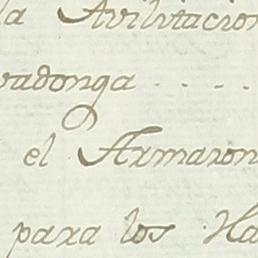 la Avilitacion
vadonga . . . .
el Armazon
para los Ha